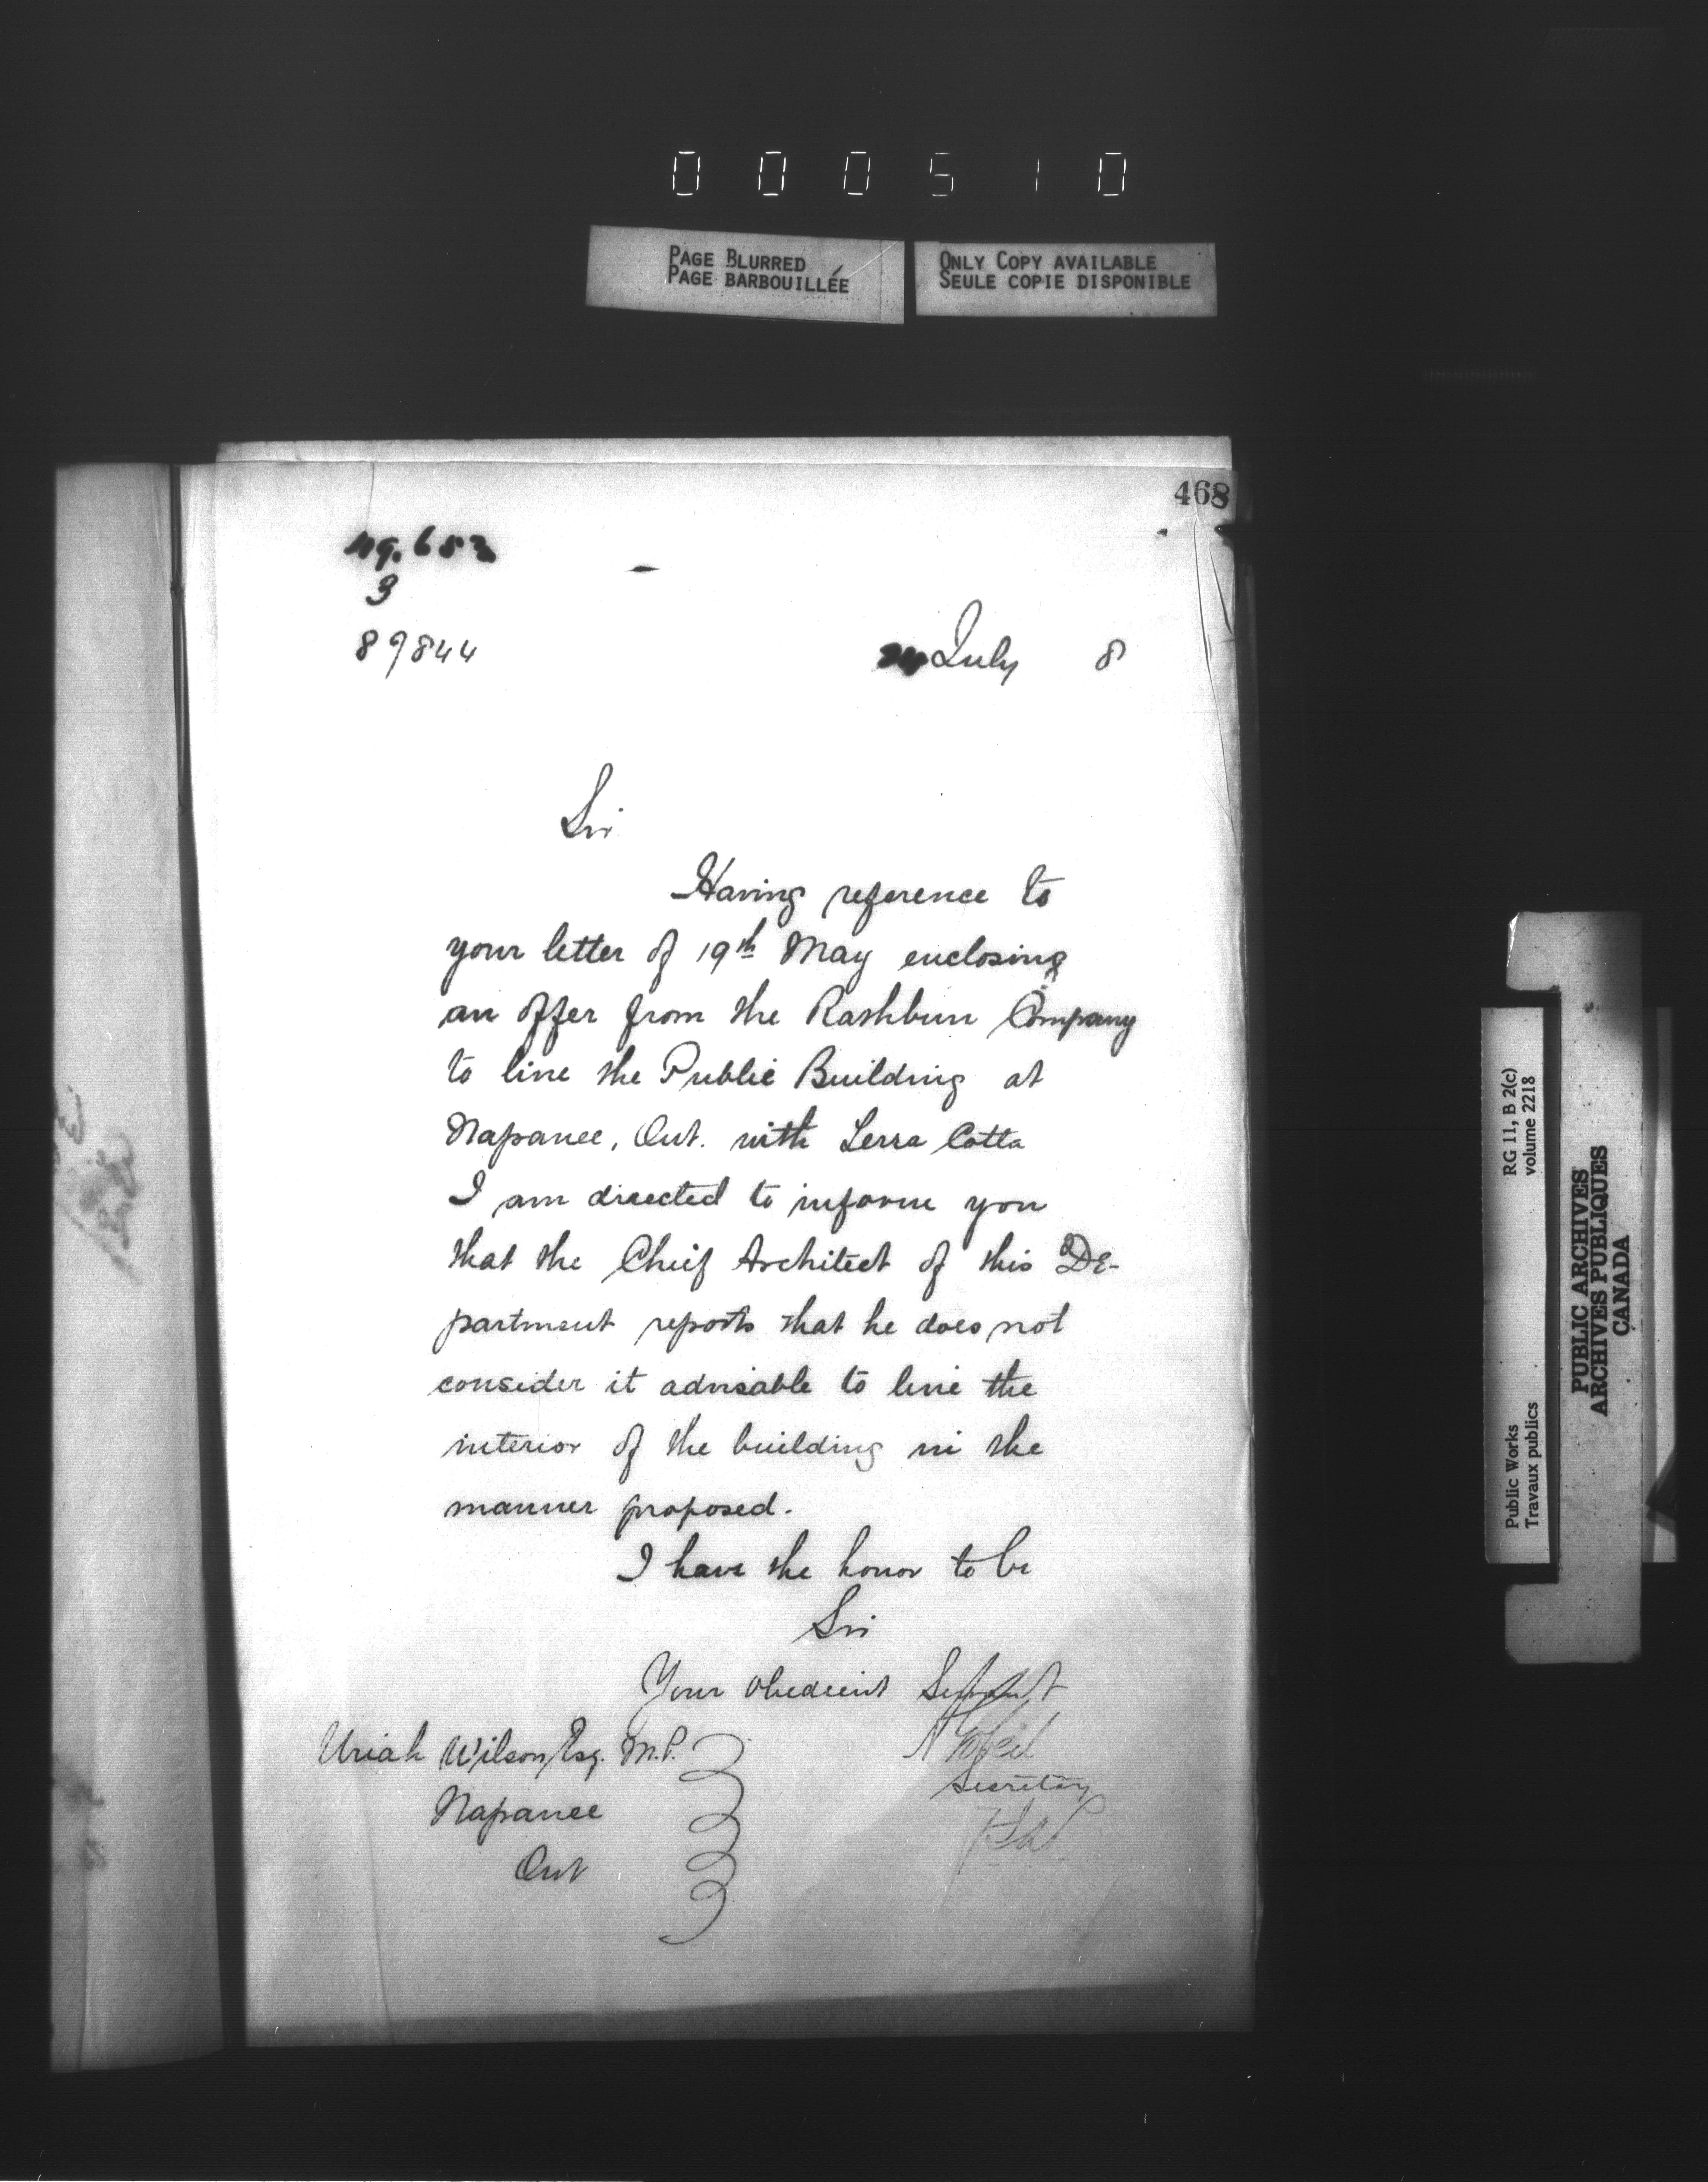 000510
PAGE BLURRED
PAGE BARBOUILLÉE
ONLY COPY AVAILABLE
SEULE COPIE DISPONIBLE
468
3
89844
July 8
Sir
Having reference to
your letter of 19th May enclosing
an offer from the Rathbun Company
to line the Public Building at
Napanee, Ont. with Terra Cotta
I am directed to inform you
that the Chief Architect of this De-
partment reports that he does not
consider it advisable to line the
interior of the building in the
manner proposed.
I have the honor to be
Sir
Your obedient Servant
Secretary
Uriah Wilson Esq. M.P.
Napanee
Ont
RG 11, B 2(c)
volume 2218
Public Works
Travaux publics
PUBLIC ARCHIVES
ARCHIVES PUBLIQUES
CANADA